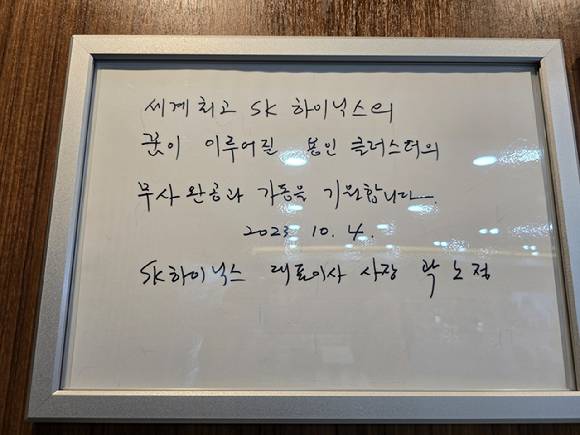 세계 최고 SK 하이닉스의
꿈이 이루어질 용인 클러스터의
무사 완공과 가동을 기원합니다.
2023. 10. 4.
SK하이닉스 대표이사 사장 곽노정